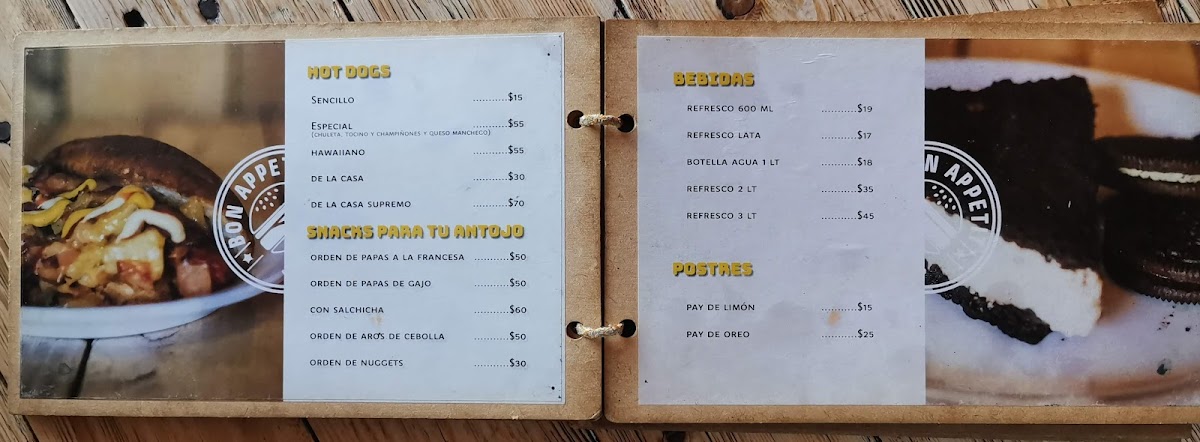 HOT DOGS
SENCILLO ...........$15
ESPECIAL ...........$55
(CHULETA, TOCINO Y CHAMPIÑONES Y QUESO MANCHEGO)
HAWAIIANO ...........$55
DE LA CASA ...........$30
DE LA CASA SUPREMO ...........$70
SNACKS PARA TU ANTOJO
ORDEN DE PAPAS A LA FRANCESA ...........$50
ORDEN DE PAPAS DE GAJO ...........$50
CON SALCHICHA ...........$60
ORDEN DE AROS DE CEBOLLA ...........$50
ORDEN DE NUGGETS ...........$30
BON APPET
BEBIDAS
REFRESCO 600 ML ...........$19
REFRESCO LATA ...........$17
BOTELLA AGUA 1 LT ...........$18
REFRESCO 2 LT ...........$35
REFRESCO 3 LT ...........$45
POSTRES
PAY DE LIMÓN ...........$15
PAY DE OREO ...........$25
ON APPET